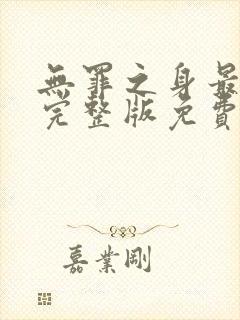 無罪之身最
完整版免費
嘉業剛